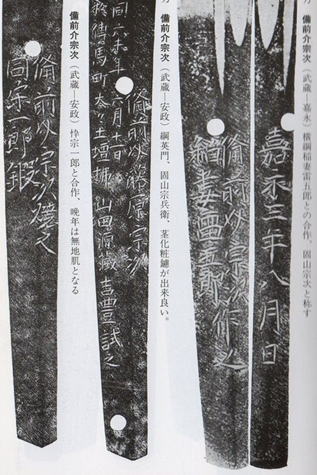 刀 備前介宗次(武蔵―嘉永)横綱稲妻雷五郎との合作、固山宗次と称す
嘉永三年八月日
備前介宗次作之
稲妻雷五郎
刀 備前介宗次(武蔵―安政)綱英門、固山宗兵衛、茎化粧鑢が出来良い。
備前介藤原宗次
同六未年六月十一日
於傳馬町太々土壇拂山田源蔵吉豊試之
備前介宗次(武蔵―安政)伜宗一郎と合作、晩年は無地肌となる
備前介宗次
同宗一郎鍛